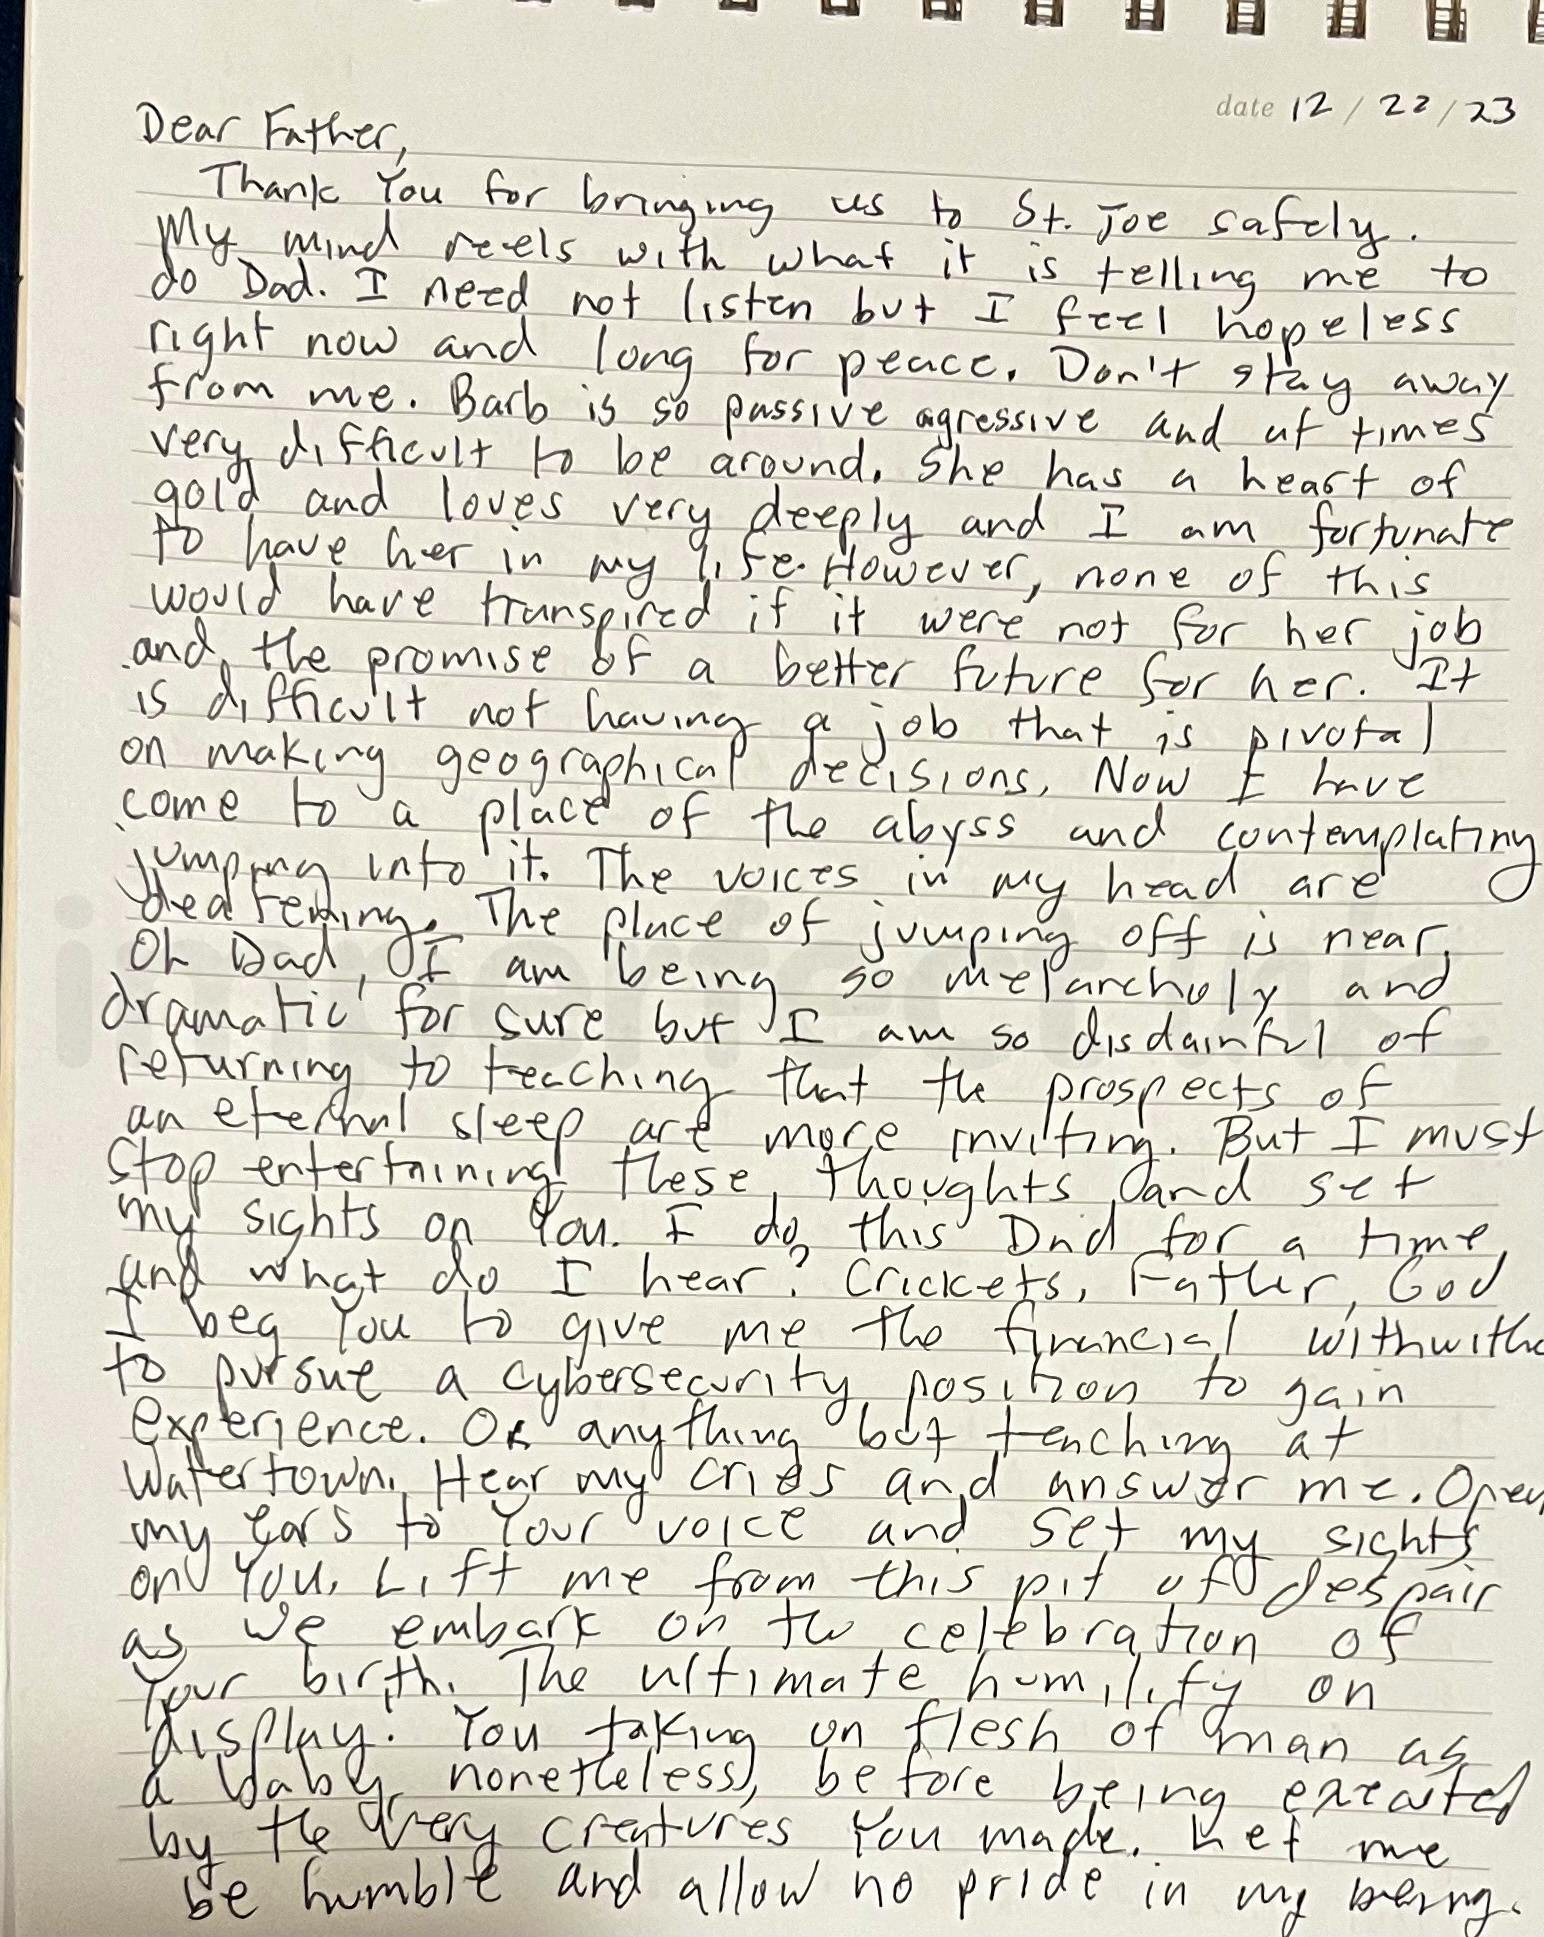 date 12 / 22 / 23
Dear Father,
Thank You for bringing us to St. Joe safely.
My mind reels with what it is telling me to
do Dad. I need not listen but I feel hopeless
right now and long for peace. Don't stay away
from me. Barb is so passive agressive and at times
very difficult to be around. She has a heart of
gold and loves very deeply and I am fortunate
to have her in my life. However, none of this
would have transpired if it were not for her job
and the promise of a better future for her. It
is difficult not having a job that is pivotal
on making geographical decisions. Now I have
come to a place of the abyss and contemplating
jumping into it. The voices in my head are
deafening. The place of jumping off is near.
Oh Dad, I am being so melancholy and
dramatic for sure but I am so disdainful of
returning to teaching that the prospects of
an eternal sleep are more inviting. But I must
stop entertaining these thoughts and set
my sights on You. I do this Dad for a time
and what do I hear? Crickets. Father, God
I beg You to give me the financial
to pursue a cybersecurity position to gain
experience. Or anything but teaching at
Watertown. Hear my cries and answer me. Open
my ears to Your voice and set my sights
on You. Lift me from this pit of despair
as we embark on the celebration of
Your birth. The ultimate humility on
display. You taking on flesh of man as
a baby nonetheless, before being executed
by the very creatures You made. Let me
be humble and allow no pride in my being.